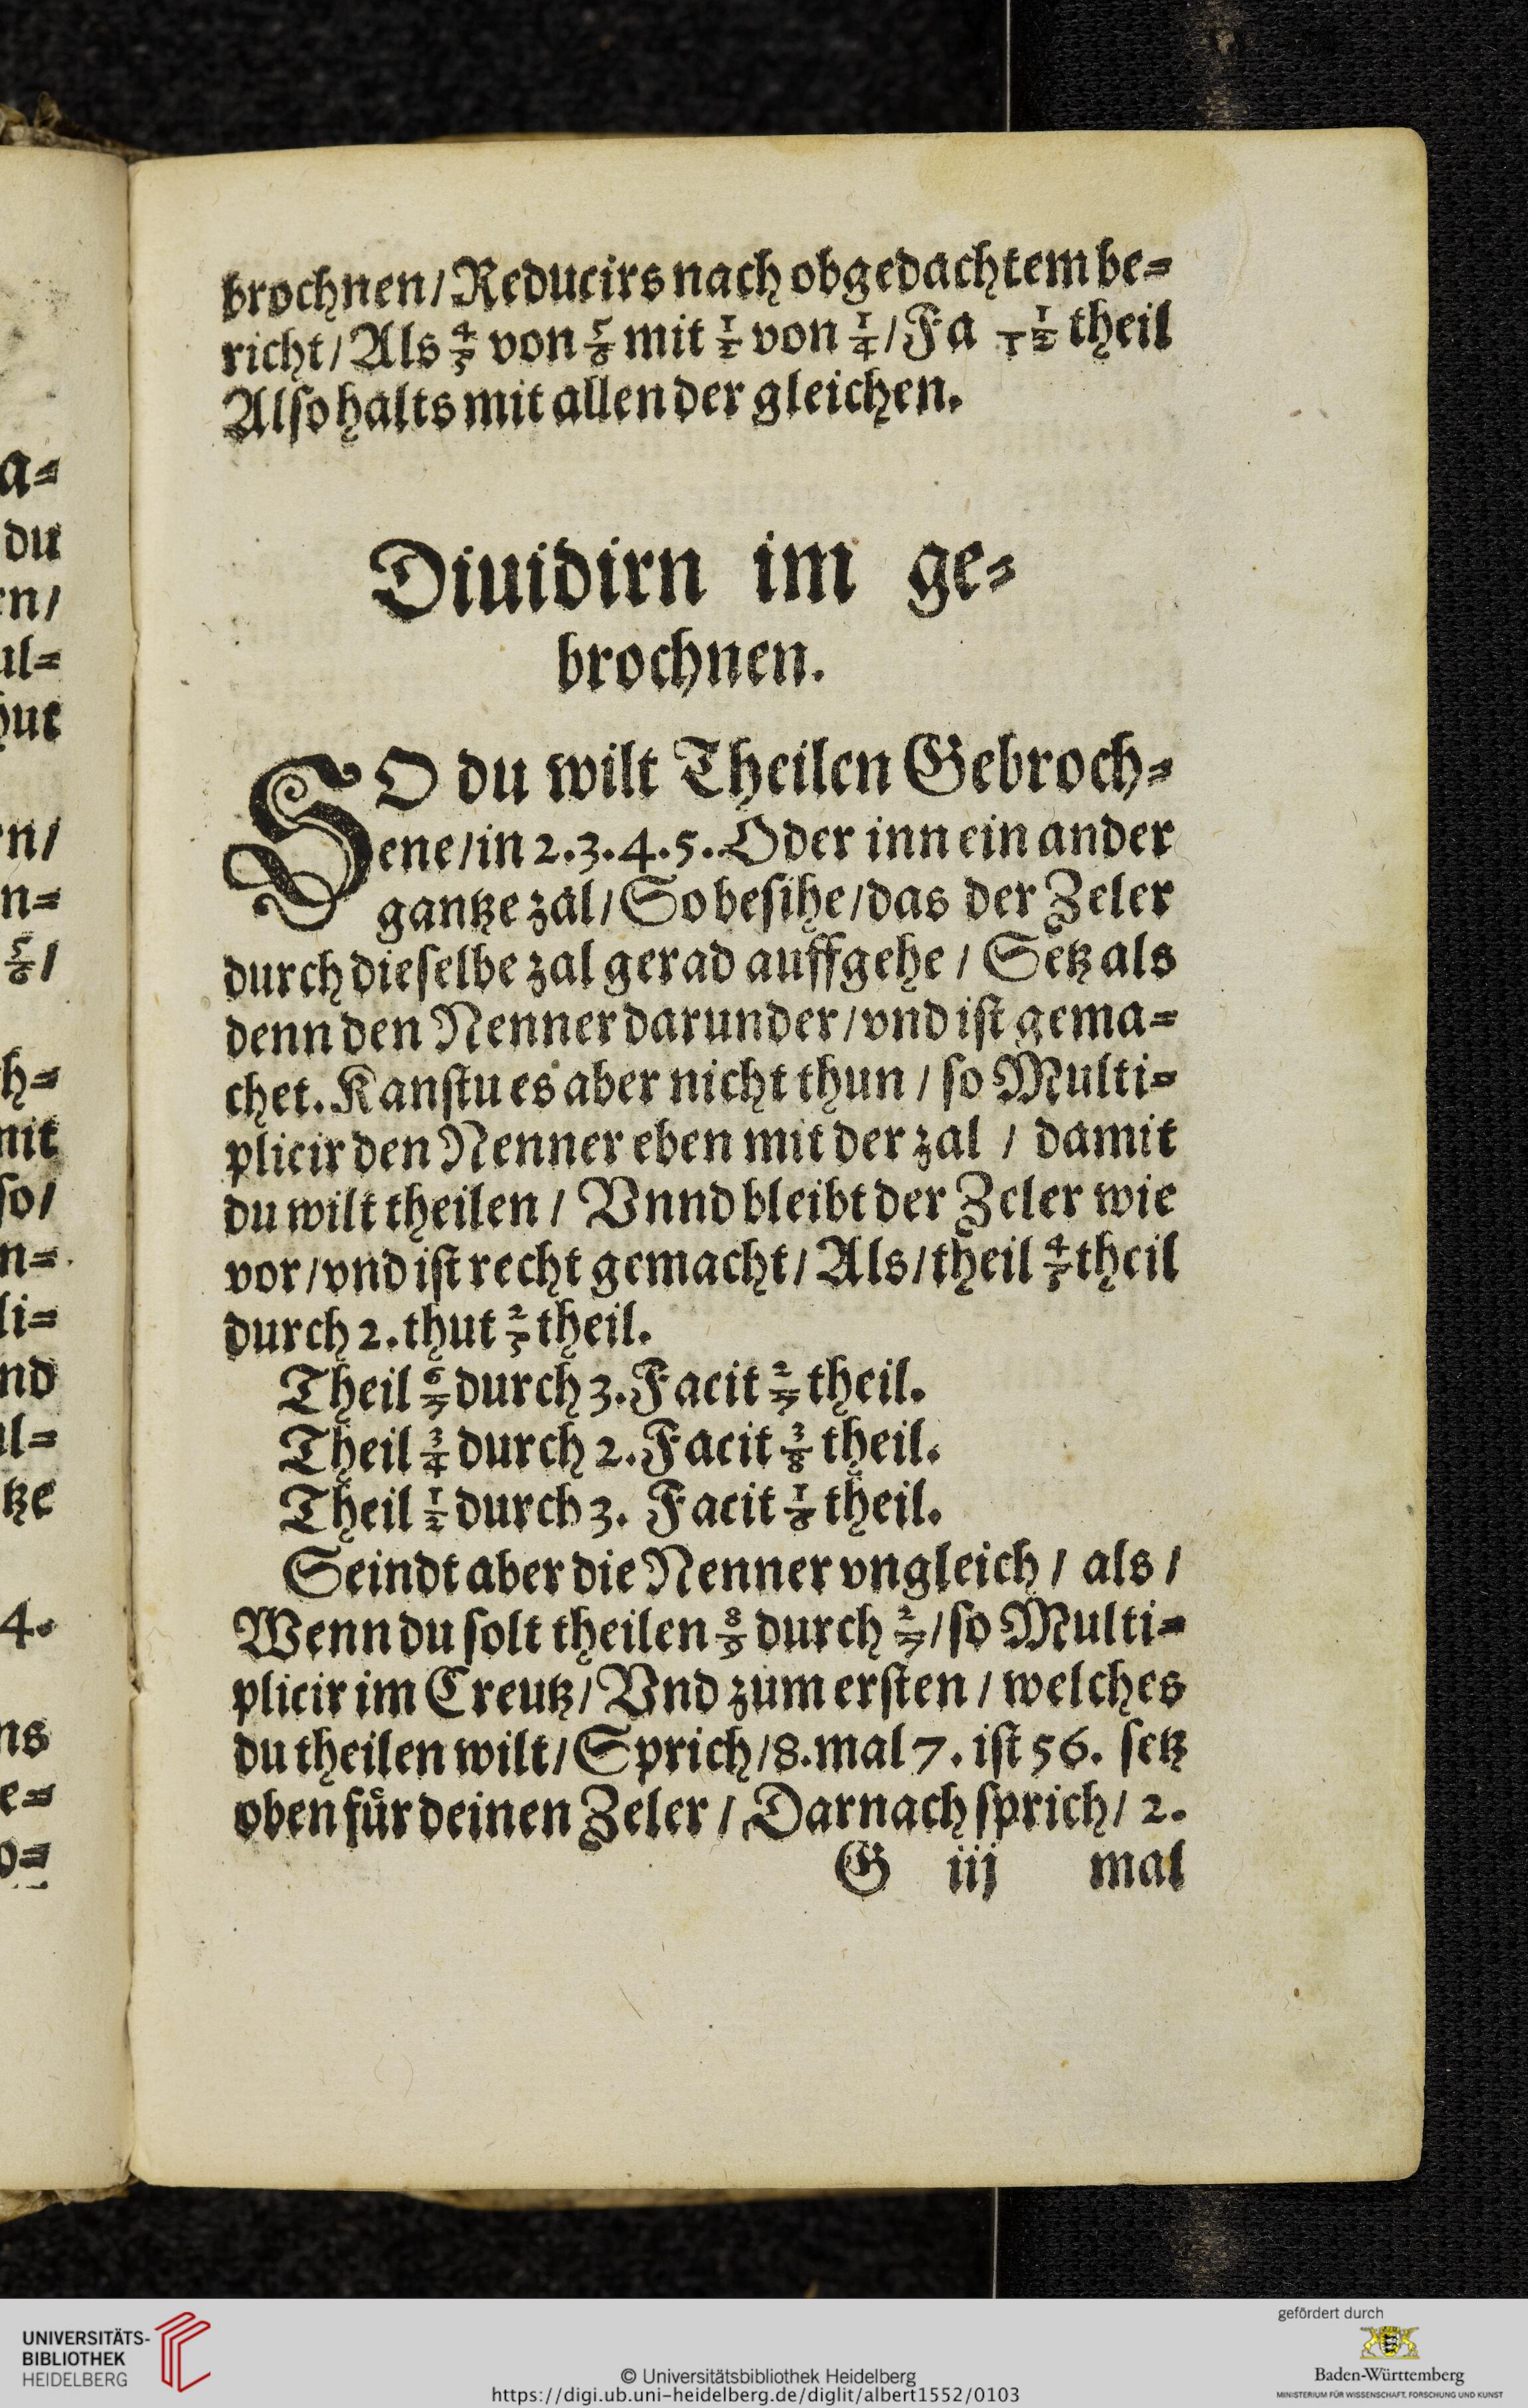 brochnen/ Reducirs nach obgedachtem be=
richt/ Als 4/5 von 5/6 mit 1/2 von 1/4/ Fa 1/12 theil
Also halts mit allen der gleichen.
Diuidirn im ge=
brochnen.
SO du wilt Theilen Gebroch=
ene/ in 2.3.4.5. Oder inn ein ander
gantze zal/ So besihe/ das der Zeler
durch dieselbe zal gerad auffgehe / Setz als
denn den Nenner darunder/ vnd ist gema=
chet. Kanstu es aber nicht thun / so Multi=
plicir den Nenner eben mit der zal / damit
du wilt theilen / Vnnd bleibt der Zeler wie
vor/ vnd ist recht gemacht/ Als/ theil 4/5 theil
durch 2. thut 2/5 theil.
Theil 6/7 durch 3. Facit 2/7 theil.
Theil 3/4 durch 2. Facit 3/8 theil.
Theil 1/2 durch 3. Facit 1/6 theil.
Seindt aber die Nenner vngleich / als /
Wenn du solt theilen 8/9 durch 2/7/ so Multi=
plicir im Creutz/ Vnd zum ersten / welches
du theilen wilt/ Sprich/ 8. mal 7. ist 56. setz
oben für deinen Zeler / Darnach sprich/ 2.
G iij mal
a=
du
en/
ul=
hut
en/
n=
5/6/
h=
mit
so/
n=
li=
nd
ul=
tze
4.
ns
e=
o=
UNIVERSITÄTS-
BIBLIOTHEK
HEIDELBERG
© Universitätsbibliothek Heidelberg
https://digi.ub.uni-heidelberg.de/diglit/albert1552/0103
gefördert durch
Baden-Württemberg
MINISTERIUM FÜR WISSENSCHAFT, FORSCHUNG UND KUNST